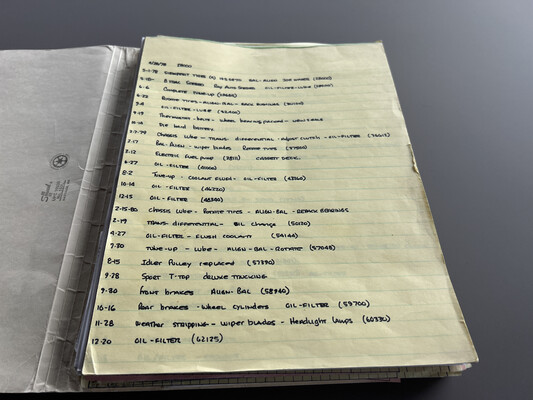 4/28/78 27000
5-1-78 BAL-ALIGN (28000)
OIL-FILTER-LUBE
COMPLETE TUNE-UP
ROTATE TIRES-ALIGN-BAL- PACK BEARINGS
OIL-FILTER-LUBE
THERMOSTAT-BELTS- WHEEL BEARING PACKED-NEW SEALS
DIE HARD BATTERY
2-7-79 CHASSIS LUBE-TRANS. DIFFERENTIAL-ADJUST CLUTCH-OIL-FILTER
2-17 BAL-ALIGN-WIPER BLADES ROTATE TIRES (37500)
3-12 ELECTRIC FUEL PUMP CASSETT DECK
6-27 OIL-FILTER
8-2 TUNE-UP - COOLANT FLUSH - OIL-FILTER (43260)
10-14 OIL-FILTER (46220)
12-15 OIL-FILTER (48340)
2-15-80 CHASSIS LUBE-ROTATE TIRES-ALIGN-BAL-REPACK BEARINGS
2-19 TRANS-DIFFERENTIAL-OIL CHANGE (50120)
4-27 OIL-FILTER-FLUSH COOLANT (54144)
7-30 TUNE-UP - LUBE- ALIGN-BAL-ROTATE (57048)
8-15 Idler Pulley replaced (57390)
9-28 Sport T-top DELUXE TINCKING
9-30 front brakes ALIGN-BAL (58940)
10-16 Rear brakes-wheel cylinders OIL-FILTER (59700)
11-28 Weather stripping-wiper blades-Headlight lamps (60330)
12-20 OIL-FILTER (62125)